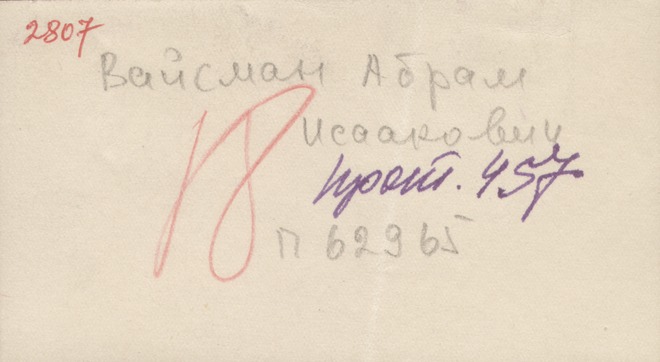 2807
Вайсман Абрам
Исаакович
прот. 457
П 62965